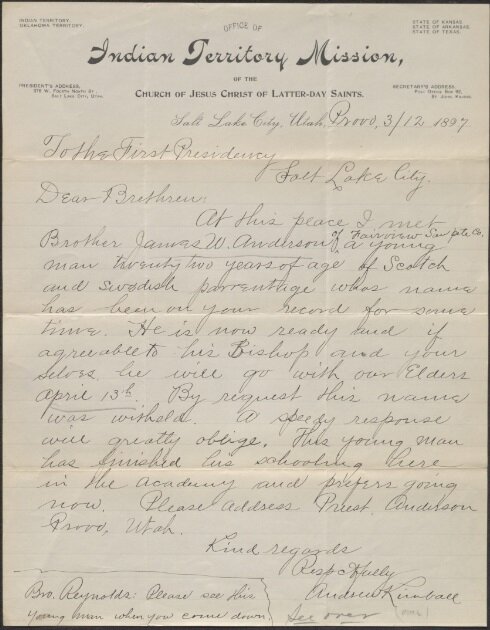 INDIAN TERRITORY.
OKLAHOMA TERRITORY.
STATE OF KANSAS.
STATE OF ARKANSAS.
STATE OF TEXAS.
OFFICE OF
Indian Territory Mission,
OF THE
CHURCH OF JESUS CHRIST OF LATTER-DAY SAINTS.
PRESIDENT'S ADDRESS,
375 W. FOURTH NORTH ST.
SALT LAKE CITY, UTAH.
SECRETARY'S ADDRESS,
POST OFFICE BOX 92,
ST. JOHN, KANSAS.
Salt Lake City, Utah, Provo, 3/12 1897.
To the First Presidency
Salt Lake City.
Dear Brethren:
At this place I met
Brother James W. Anderson of Fairview San pete Co. a young
man twenty two years of age of Scotch
and Swedish parentage whos name
has been on your record for some
time. He is now ready and if
agreeable to his Bishop and your
selves, he will go with our Elders
April 13th. By request this name
was witheld. A speedy response
will greatly oblige. This young man
has finished his schooling here
in the Academy and prefers going
now. Please address Priest. Anderson
Provo, Utah.
Kind regards
Respectfully
Andrew Kimball
Bro. Reynolds: Please see this
young man when you come down.
See over